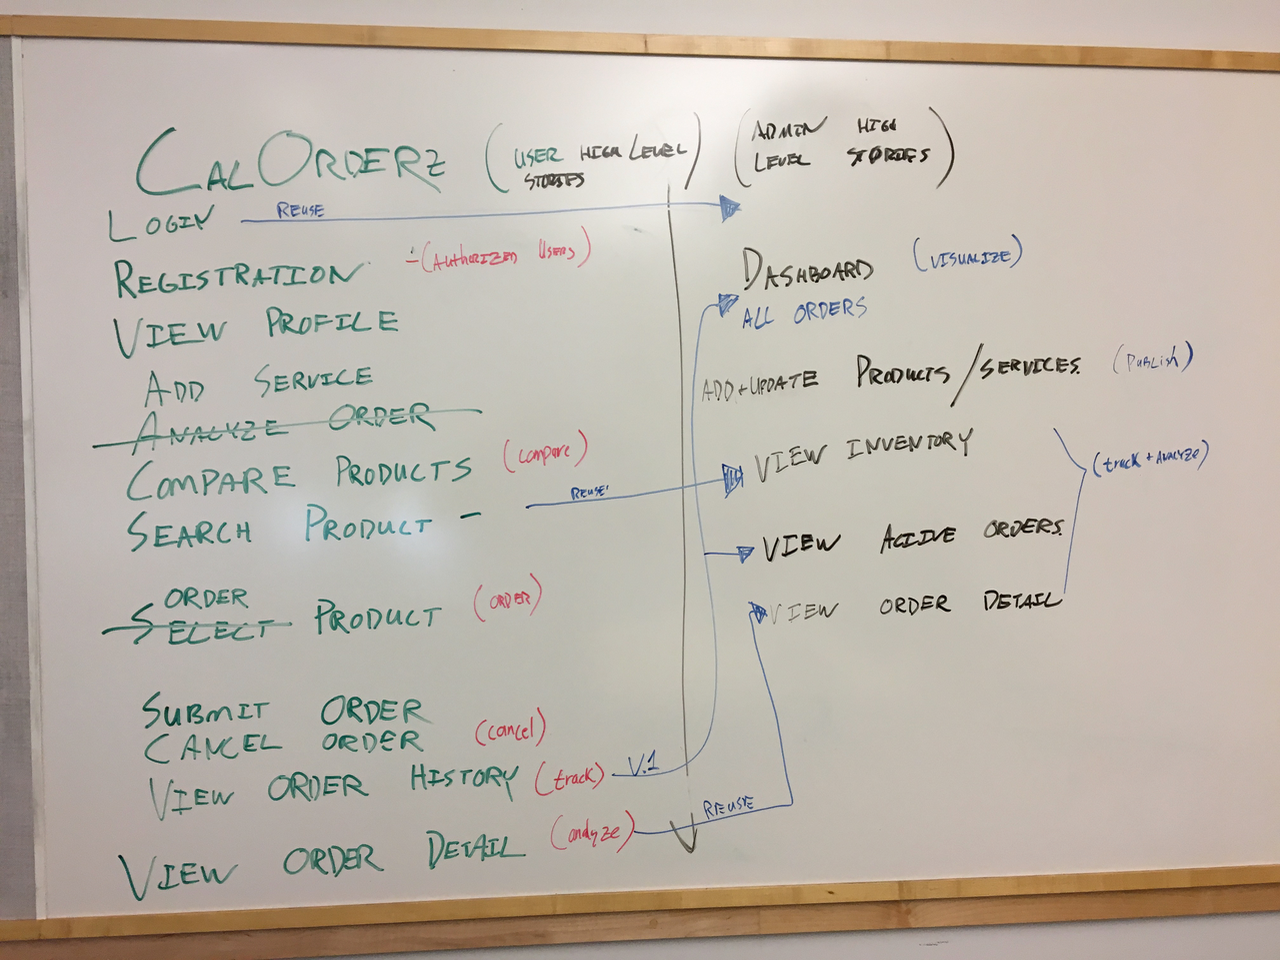 CALORDERZ (USER HIGH LEVEL STORIES)
(ADMIN HIGH LEVEL STORIES)
LOGIN
REUSE
REGISTRATION - (AUTHORIZED USERS)
VIEW PROFILE
ADD SERVICE
ANALYZE ORDER
COMPARE PRODUCTS (compare)
SEARCH PRODUCT -
REUSE
ORDER
SELECT PRODUCT (ORDER)
SUBMIT ORDER
CANCEL ORDER (cancel)
VIEW ORDER HISTORY (track)
V.1
VIEW ORDER DETAIL (analyze)
REUSE
DASHBOARD (VISUALIZE)
ALL ORDERS
ADD + UPDATE PRODUCTS/SERVICES (PUBLISH)
VIEW INVENTORY
(track + ANALYZE)
VIEW ACTIVE ORDERS
VIEW ORDER DETAIL